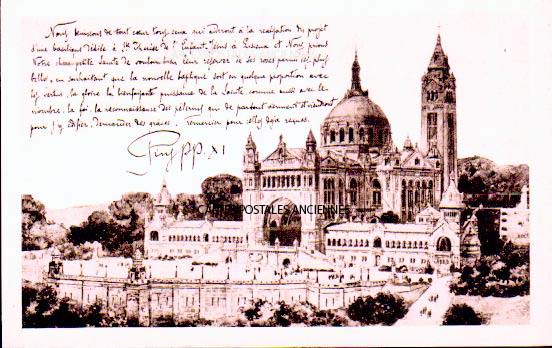 Nous bénissons de tout cœur tous ceux qui aideront à la réalisation du projet
d'une basilique dédiée à Ste Thérèse de l'Enfant Jésus à Lisieux et Nous prions
Notre chère petite Sainte de vouloir bien leur réserver de ses roses parmi les plus
belles, en souhaitant que la nouvelle basilique soit en quelque proportion avec
les vertus, la gloire, la bienfaisante puissance de la Sainte, comme aussi avec le
nombre, la foi, la reconnaissance des pèlerins qui de partout viennent et viendront
pour s'y édifier, demander des grâces, remercier pour celles déjà reçues.
Pius PP. XI
CARTES POSTALES ANCIENNES